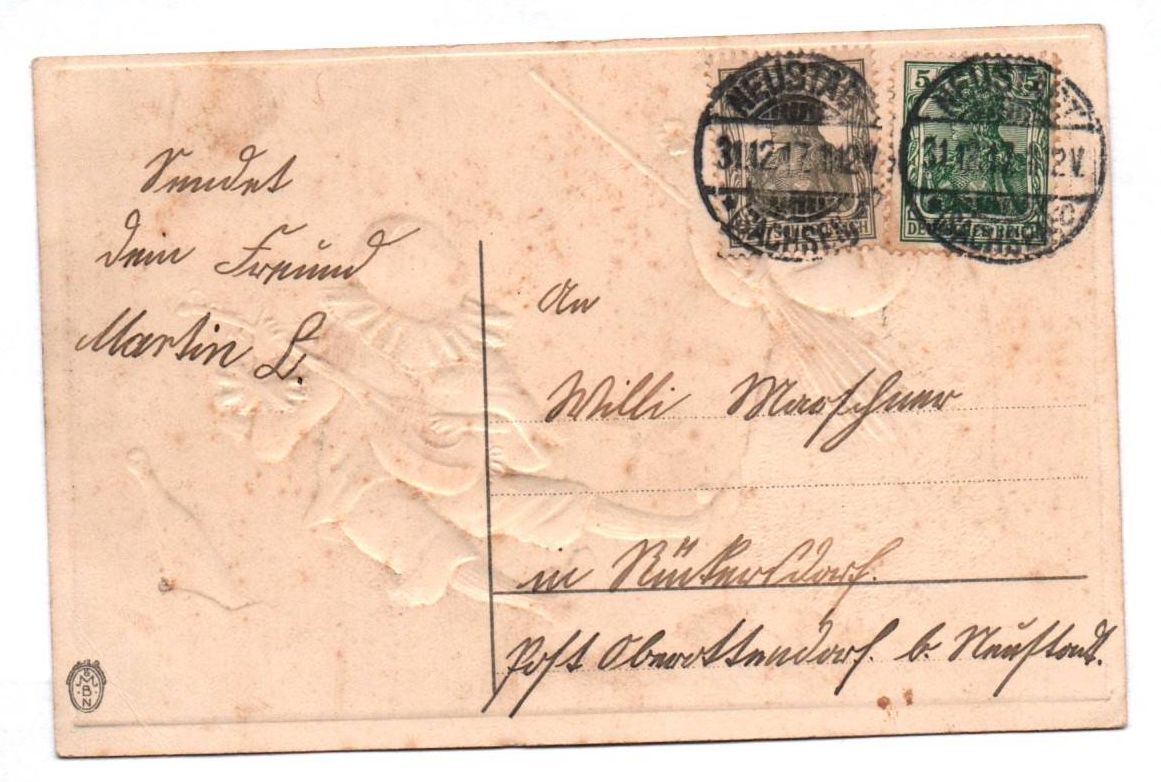 Sendet
dem Freund
Martin L.
NEUSTADT
31.12.17.11-12V.
SACHSEN
DEUTSCHES REICH
NEUSTADT
31.12.17.11-12V.
5 5
DEUTSCHES REICH
An
Willi Marschner
in Rückersdorf.
Post Oberottendorf. b. Neustadt.
M
B
N